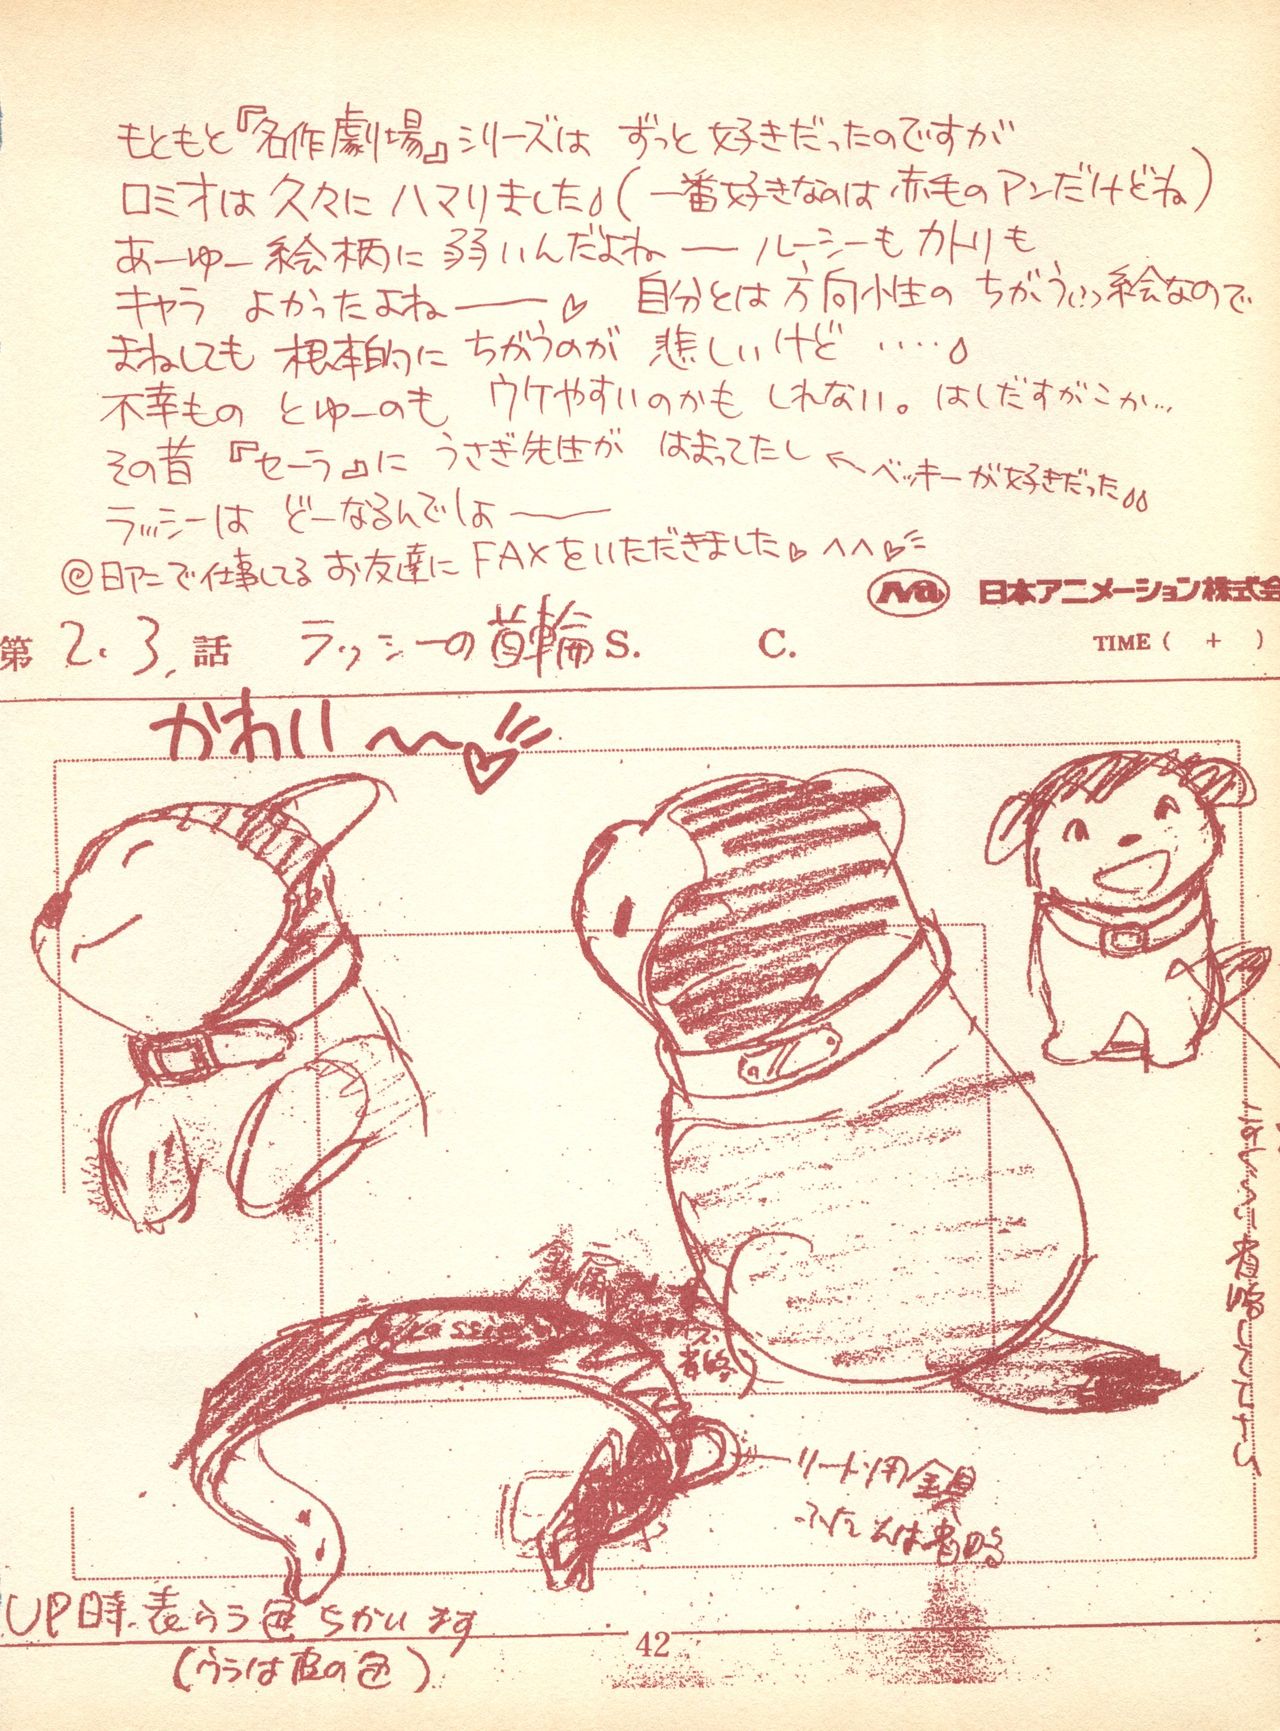 もともと『名作劇場』シリーズは ずっと好きだったのですが
ロミオは久々に ハマりました(一番好きなのは 赤毛のアンだけどね)
あーゆー絵柄に 弱いんだよねー ルーシーもカトリも
キャラ よかったよねー♡ 自分とは方向性の ちがう絵なので
まねしても 根本的に ちがうのが 悲しいけど ‥‥
不幸もの とゆーのも ウケやすいのかも しれない。はしだすがこか…
その昔 『セーラ』に うさぎ先生が はまってたし ←ベッキーが好きだった
ラッシーは どーなるんでしょー
@日アニで仕事してる お友達に FAXをいただきました♡ ^^♡
日本アニメーション株式会
第 2.3. 話 ラッシーの首輪 S. C. TIME ( + )
かわい〜〜♡
金属
Lassie
省略
リード用金具
ふだんは省略
UP時.表うら色ちがいます
(ウラは皮の色)
42